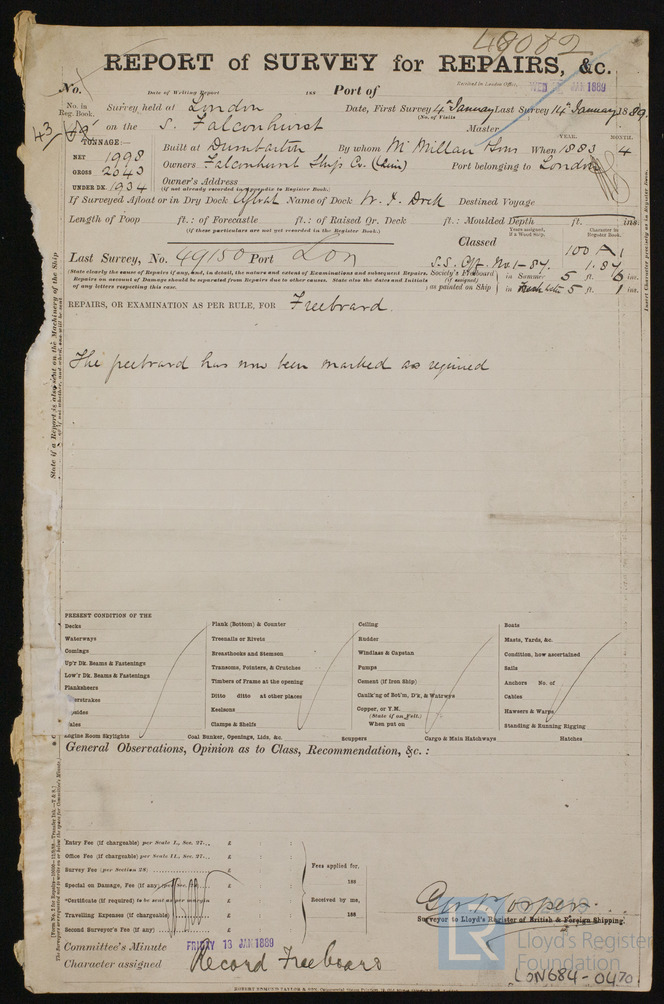 48082
REPORT of SURVEY for REPAIRS, &c.
No. Date of Writing Report 188 Port of Received in London Office, WED JAN 1889
No. in Reg. Book. Survey held at London Date, First Survey 4th January Last Survey 14th January 1889.
(No. of Visits
43 on the S. Falconhurst Master
TONNAGE:— YEAR. MONTH.
NET 1998 Built at Dumbarton By whom McMillan & Sons When 1883 4
GROSS 2043 Owners Falconhurst Ship Co. (Lim) Port belonging to London
UNDER DK. 1934 Owner's Address
(if not already recorded in Appendix to Register Book.)
If Surveyed Afloat or in Dry Dock Afloat Name of Dock W. I. Dock Destined Voyage
Length of Poop ft.: of Forecastle ft.: of Raised Qr. Deck ft.: Moulded Depth ft. ins.
(If these particulars are not yet recorded in the Register Book.)
Years assigned, if a Wood Ship. Character in Register Book.
Classed 100 A 1
Last Survey, No. 49150 Port Lon S.S. No. 1-87. 1.87
(State clearly the cause of Repairs, if any, and, in detail, the nature and extent of Examinations and subsequent Repairs.
Repairs on account of Damage should be separated from Repairs due to other causes. State also the dates and Initials
of any letters respecting this case.
Society's Freeboard (if assigned) as painted on Ship in Summer 5 ft. ins.
in Fresh Water 5 ft. 1 ins.
REPAIRS, OR EXAMINATION AS PER RULE, FOR Freeboard.
The freeboard has now been marked as required
PRESENT CONDITION OF THE
Decks
Waterways
Comings
Up'r Dk. Beams & Fastenings
Low'r Dk. Beams & Fastenings
Planksheers
erstrakes
sides
ales
Engine Room Skylights
Plank (Bottom) & Counter
Treenails or Rivets
Breasthooks and Stemson
Transoms, Pointers, & Crutches
Timbers of Frame at the opening
Ditto ditto at other places
Keelsons
Clamps & Shelfs
Coal Bunker, Openings, Lids, &c.
Ceiling
Rudder
Windlass & Capstan
Pumps
Cement (if Iron Ship)
Caulk'ng of Bot'm, D'k, & Waterways
Copper, or Y.M.
(State if on Felt.)
When put on
Scuppers
Cargo & Main Hatchways
Boats
Masts, Yards, &c.
Condition, how ascertained
Sails
Anchors No. of
Cables
Hawsers & Warps
Standing & Running Rigging
Hatches
General Observations, Opinion as to Class, Recommendation, &c. :
Entry Fee (if chargeable) per Scale I., Sec. 27... £
Office Fee (if chargeable) per Scale II., Sec. 27... £
Survey Fee (per Section 28) £
Special on Damage, Fee (if any) per Sec. 28 £
Certificate (if required) to be sent as per margin £
Travelling Expenses (if chargeable) £
Second Surveyor's Fee (if any) £
Fees applied for,
188
Received by me,
188
Surveyor to Lloyd's Register of British & Foreign Shipping.
Committee's Minute FRIDAY 18 JAN 1889
Character assigned Record Freeboard
LR Lloyd's Register Foundation
LON684-0470